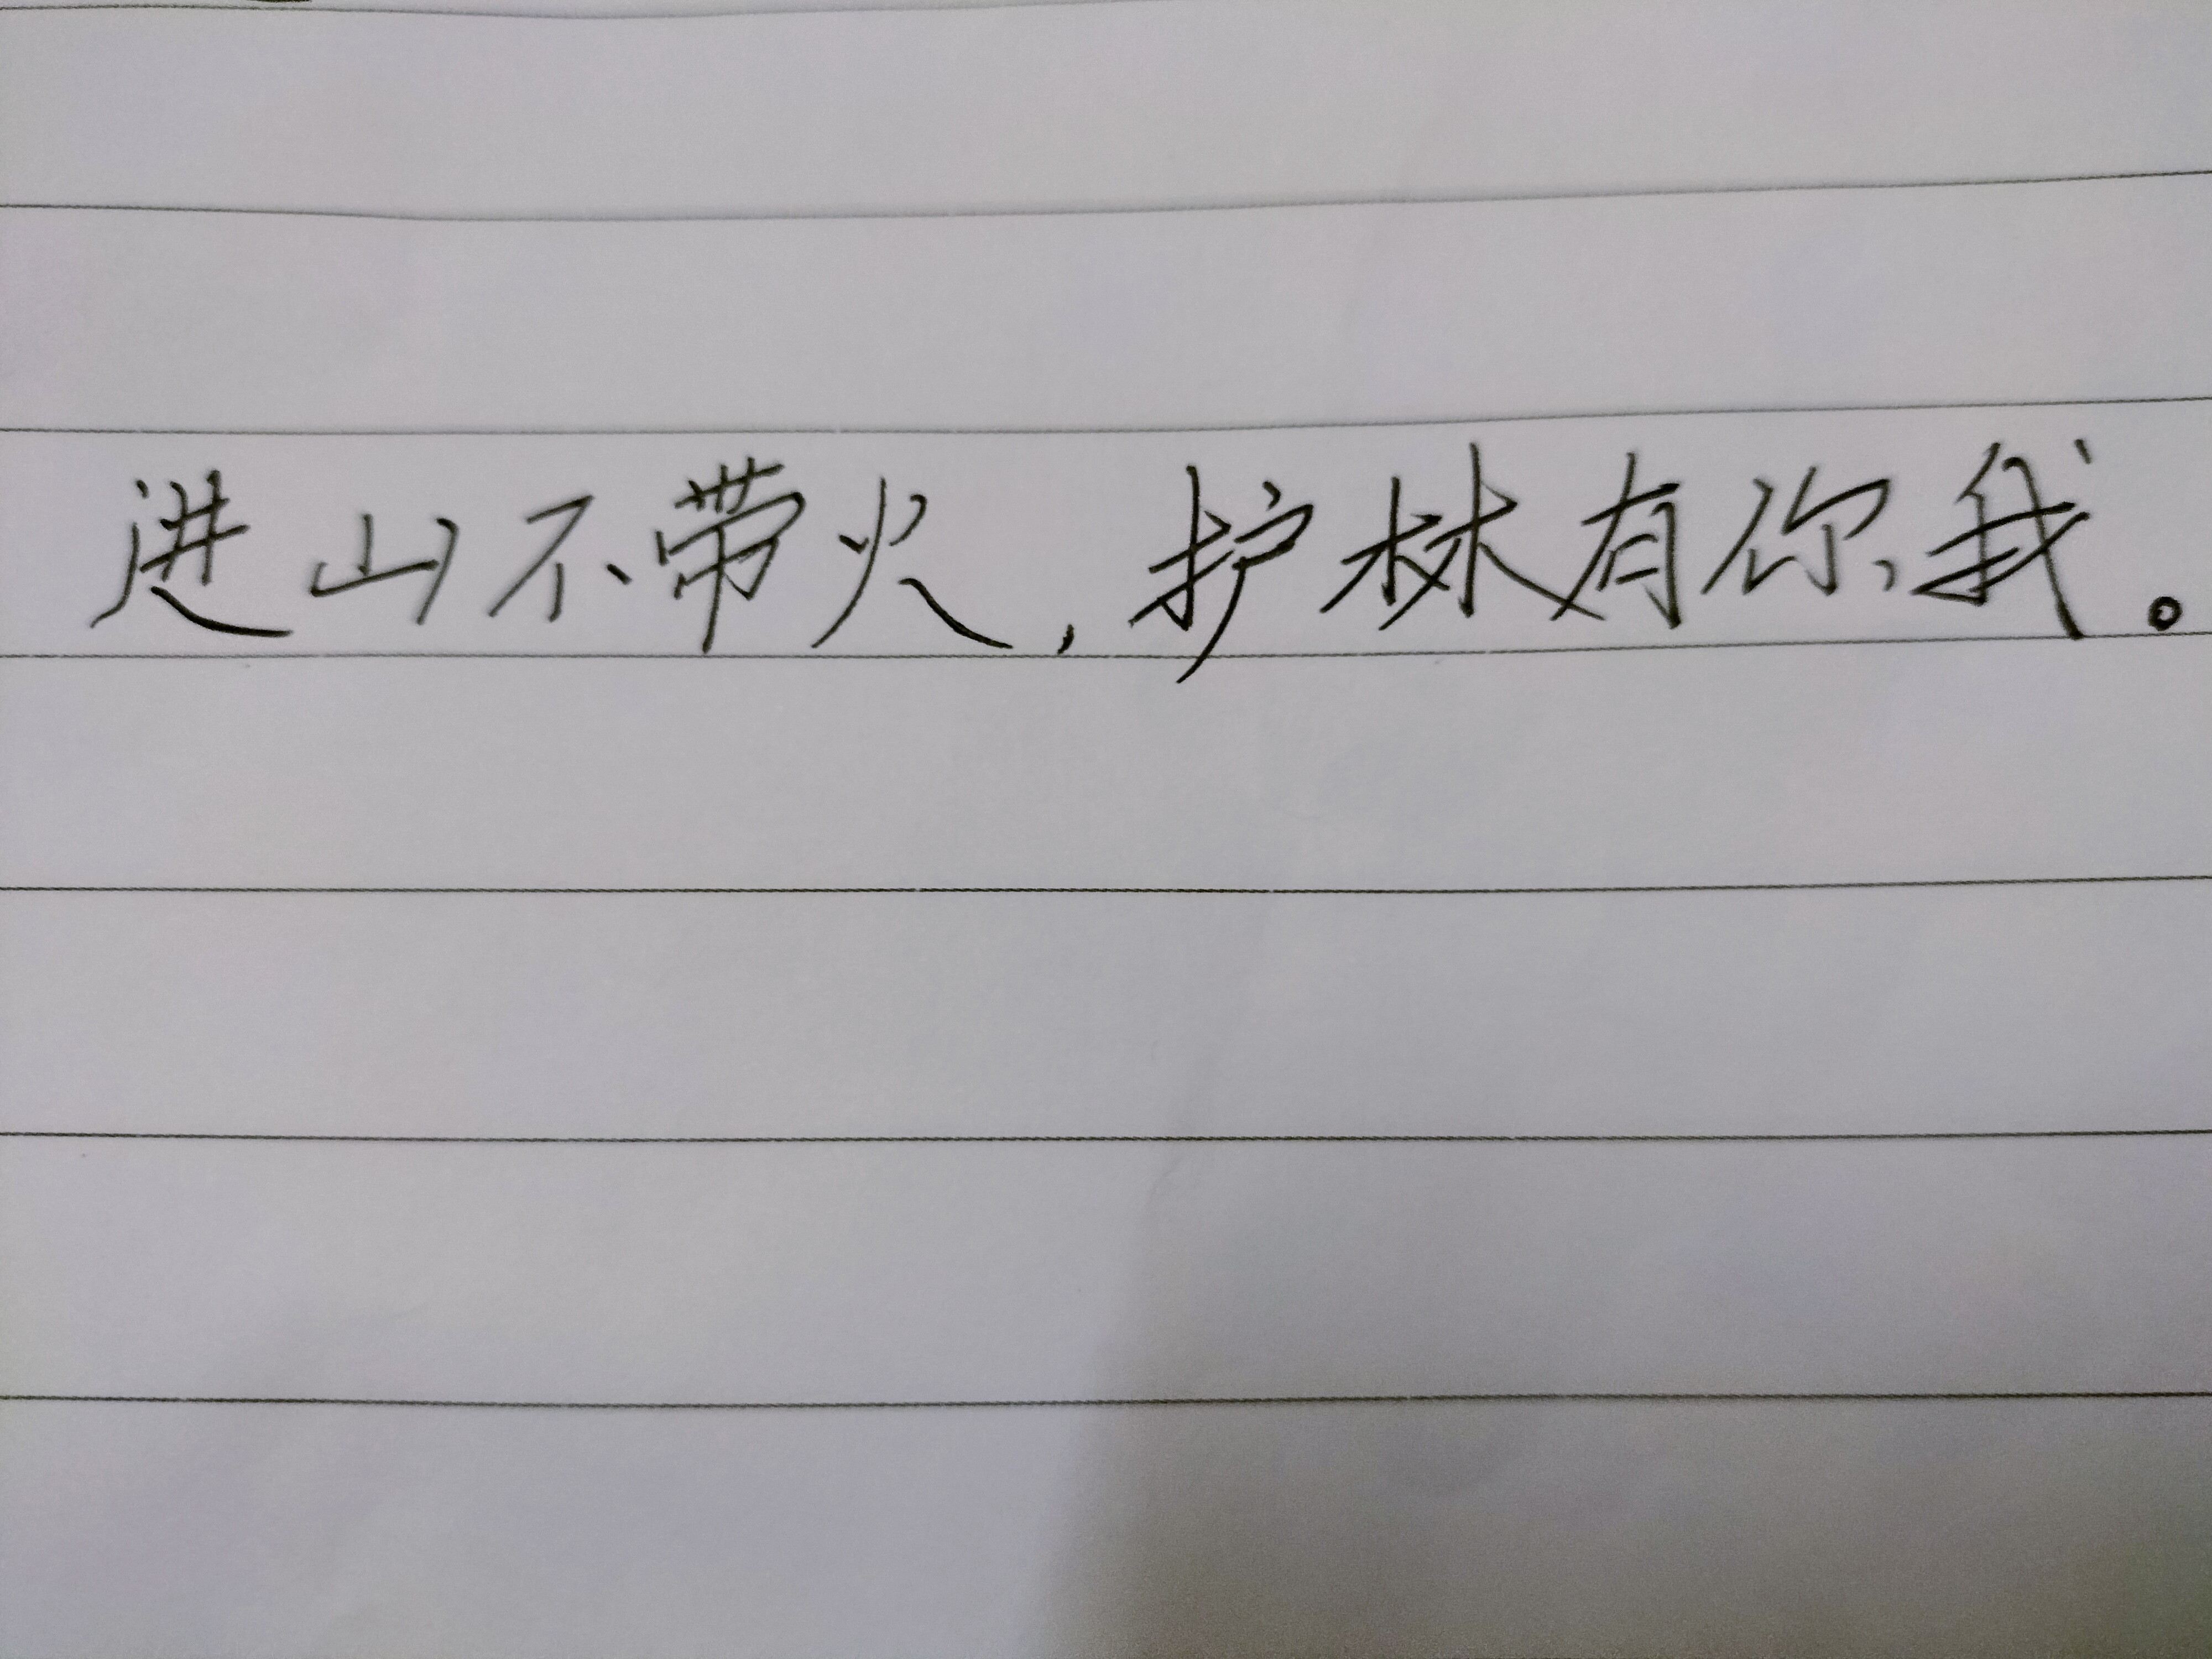 进山不带火，护林有你我。